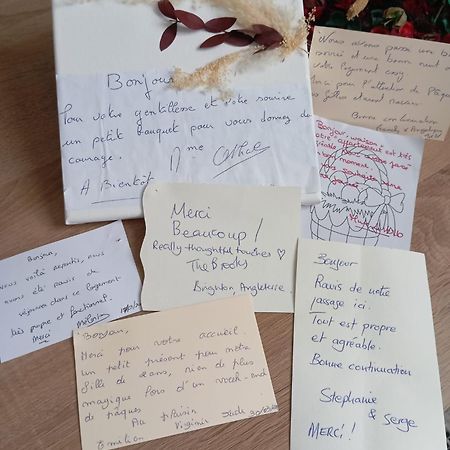 Bonjour
Pour votre gentillesse et votre sourire
un petit bouquet pour vous donnez du
courage.
A Bientôt
Mme
Nous avons passé une bonne
soirée et une bonne nuit
votre logement cosy
Merci pour l'attention de Pâques
Bonne continuation
Bonjour,
votre appartement est très
agréable
bon moment
Merci
Beaucoup!
Really thoughtful touches
The Brooks
Brighton Angleterre.
Bonjour,
Nous voilà repartis, nous
avons été ravis de
séjourner dans ce logement
très propre et fonctionnel.
Merci
Bonjour,
Merci pour votre accueil.
un petit présent pour notre
fille de 2 ans, rien de plus
magique lors d'un week-end
de pâques
Au plaisir
Virginie
Emilien
Bonjour
Ravis de notre
passage ici.
Tout est propre
et agréable.
Bonne continuation
Stephanie
& Serge
MERCI!